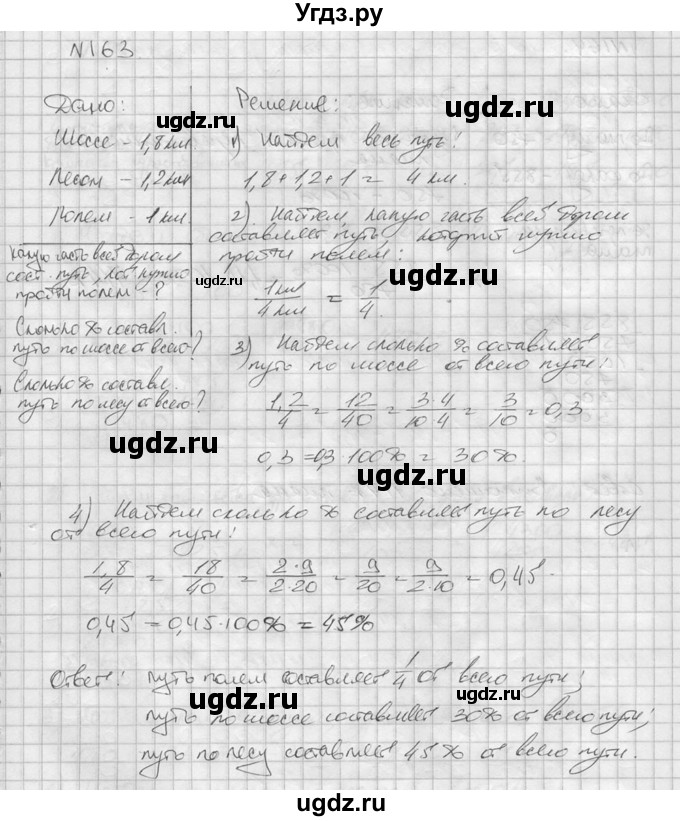 Угдз.ру
№163
Дано:
Шоссе - 1,8 км
Лесом - 1,2 км
Полем - 1 км
Какую часть всей дороги
сост. путь, кот. нужно
пройти полем - ?
Сколько % составл.
путь по шоссе от всего - ?
Сколько % составл.
путь по лесу от всего - ?
Решение:
1) Найдем весь путь:
1,8+1,2+1 = 4 км.
2) Найдем, какую часть всей дороги
составляет путь, который нужно
пройти полем:
1км/4км = 1/4.
3) Найдем сколько % составляет
путь по шоссе от всего пути:
1,2/4 = 12/40 = 3·4/10·4 = 3/10 = 0,3
0,3 = 0,3·100% = 30%.
4) Найдем сколько % составляет путь по лесу
от всего пути:
1,8/4 = 18/40 = 2·9/2·20 = 9/20 = 9/2·10 = 0,45.
0,45 = 0,45·100% = 45%
Ответ: путь полем составляет 1/4 от всего пути;
путь по шоссе составляет 30% от всего пути;
путь по лесу составляет 45% от всего пути.
ugdz.ru
ugdz.ru
ugdz.ru
ugdz.ru
ugdz.ru
ugdz.ru
ugdz.ru
ugdz.ru
ugdz.ru
ugdz.ru
ugdz.ru
ugdz.ru